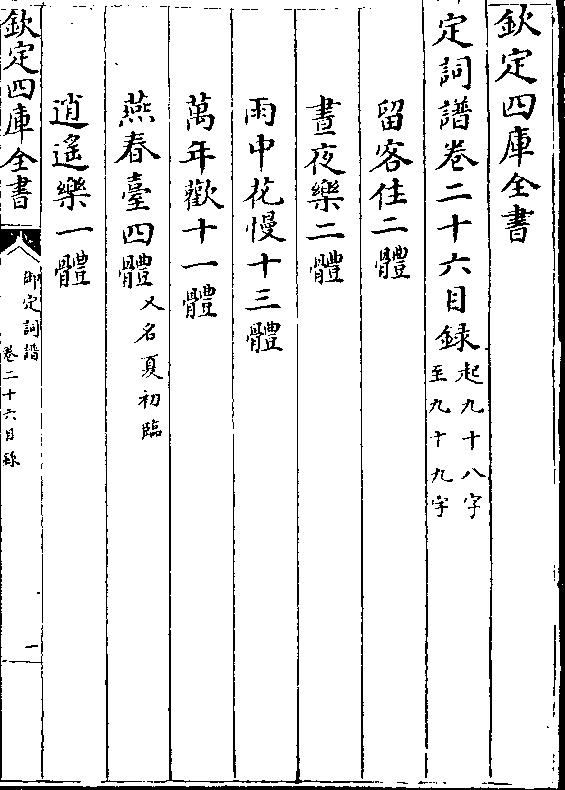 欽定四庫全書
定詞譜卷二十六目録起九十八字
至九十九字
留客住二體
晝夜樂二體
雨中花慢十三體
萬年歡十一體
燕春臺四體又名夏初臨
逍遙樂一體
欽定四庫全書
御定詞譜
卷二十六目録
一